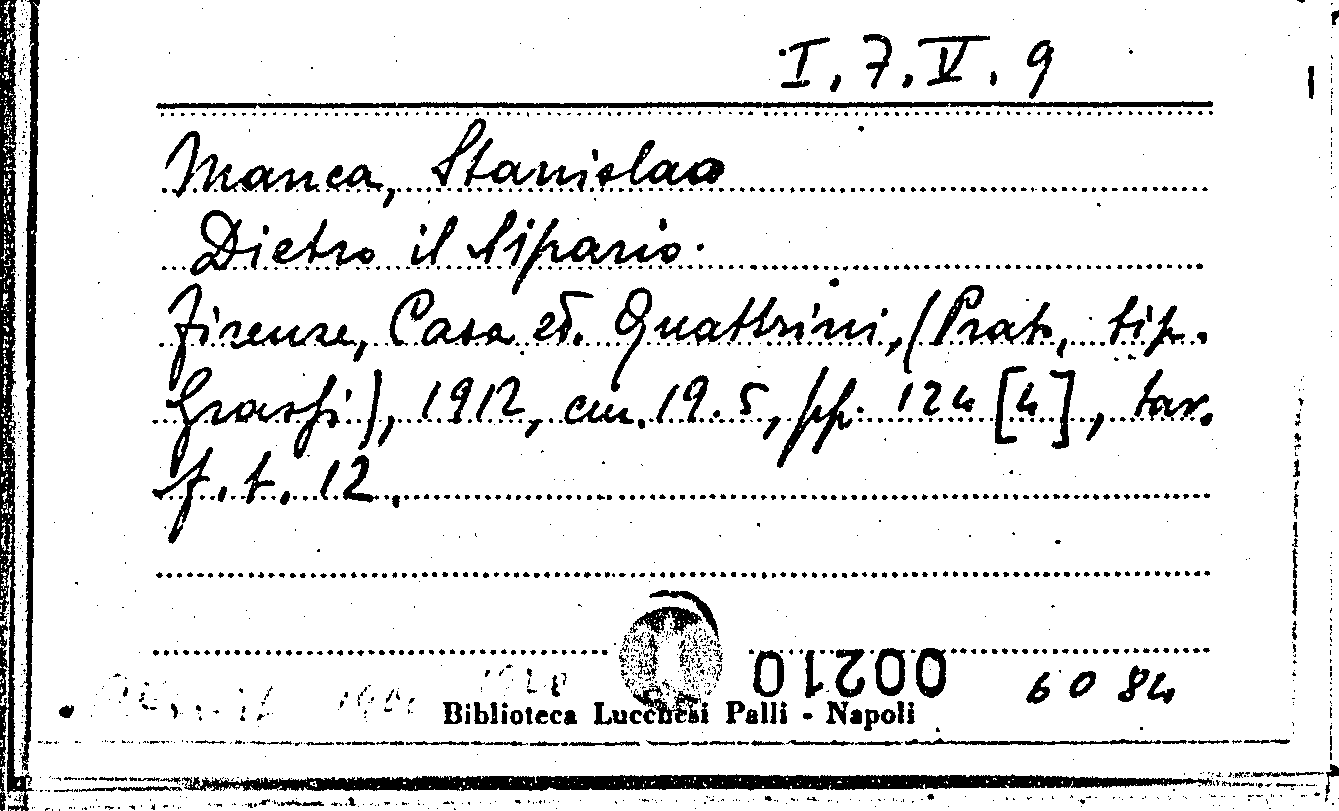 I. 7. V. 9
Manca, Stanislao
Dietro il Sipario.
Firenze, Casa ed. Quattrini, (Prato, tip.
Grassi), 1912, cm. 19.5, pp. 124 [4], tav.
f. t. 12.
00210
6084
Biblioteca Lucchesi Palli - Napoli